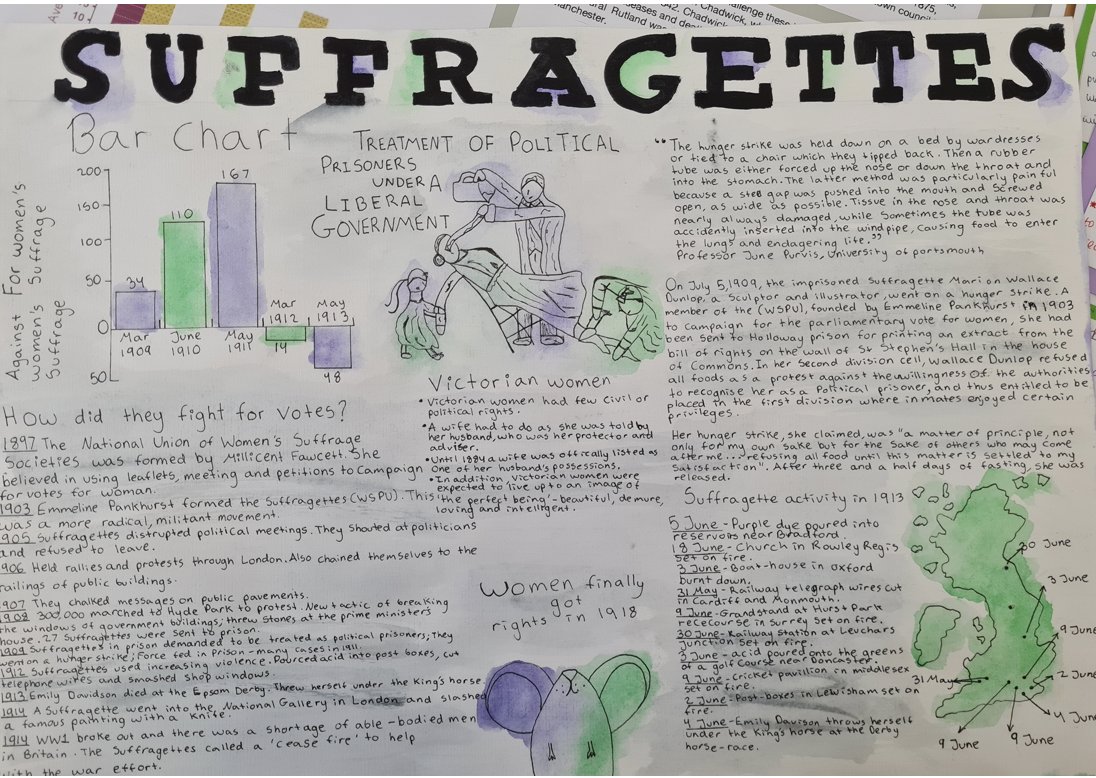 SUFFRAGETTES
Bar Chart
Against For women's
women's Suffrage
Suffrage
200
150
100
50
0
50
34
110
167
Mar
1912
May
1913
Mar
1909
June
1910
May
1911
14
48
TREATMENT OF POLITICAL
PRISONERS
UNDER A
LIBERAL
GOVERNMENT
"The hunger strike was held down on a bed by wardresses
or tied to a chair which they tipped back. Then a rubber
tube was either forced up the nose or down the throat and
into the stomach. The latter method was particularly painful
because a steel gap was pushed into the mouth and screwed
open, as wide as possible. Tissue in the nose and throat was
nearly always damaged, while sometimes the tube was
accidently inserted into the windpipe, causing food to enter
the lungs and endagering life."
Professor June Purvis, University of portsmouth
On July 5, 1909, the imprisoned Suffragette Marion Wallace
Dunlop, a Sculptor and illustrator, went on a hunger strike. A
member of the (WSPU), founded by Emmeline Pankhurst in 1903
to campaign for the parliamentary vote for women, she had
been sent to Holloway prison for printing an extract from the
bill of rights on the wall of St Stephen's Hall in the house
of Commons. In her second division cell, Wallace Dunlop refused
all foods as a protest against the uwillingness of the authorities
to recognise her as a Political prisoner, and thus entitled to be
placed in the first division where inmates enjoyed certain
privileges.
Her hunger strike, she claimed, was "a matter of principle, not
only for my own sake but for the sake of others who may come
after me... refusing all food until this matter is settled to my
satisfaction". After three and a half days of fasting, she was
released.
Victorian women
• Victorian women had few civil or
political rights.
• A wife had to do as she was told by
her husband, who was her protector and
adviser.
• Until 1884 a wife was officially listed as
one of her husband's possessions.
• In addition, Victorian women were
expected to live up to an image of
'the perfect being' - beautiful, demure,
loving and intelligent.
How did they fight for votes?
1897 The National Union of Women's Suffrage
Societies was formed by Millicent Fawcett. She
believed in using leaflets, meeting and petitions to campaign
for votes for woman.
1903 Emmeline Pankhurst formed the Suffragettes (WSPU). This
was a more radical, militant movement.
1905 Suffragettes distrupted political meetings. They shouted at politicians
and refused to leave.
1906 Held rallies and protests through London. Also chained themselves to the
railings of public buildings.
1907 They chalked messages on public pavements.
1908 300,000 marched to Hyde Park to protest. New tactic of breaking
the windows of government buildings; threw stones at the prime minister's
house. 27 Suffragettes were sent to prison.
1909 Suffragettes in prison demanded to be treated as political prisoners; they
went on a hunger strike; Force fed in prison - many cases in 1911.
1912 Suffragettes used increasing violence. Poured acid into post boxes, cut
telephone wires and smashed shop windows.
1913 Emily Davidson died at the Epsom Derby. Threw herself under the King's horse
1914 A Suffragette went into the National Gallery in London and slashed
a famous painting with a knife.
1914 WW1 broke out and there was a shortage of able-bodied men
in Britain. The Suffragettes called a 'cease fire' to help
with the war effort.
Women finally
got
rights in 1918
Suffragette activity in 1913
5 June - Purple dye poured into
reservoirs near Bradford.
18 June - Church in Rowley Regis
set on fire.
3 June - Boat-house in Oxford
burnt down.
31 May - Railway telegraph wires cut
in Cardiff and Monmouth.
9 June - Grandstand at Hurst Park
rececourse in Surrey set on fire.
30 June - Railway station at Leuchars
junction set on fire.
3 June - acid poured onto the greens
of a golf course near Doncaster.
9 June - Cricket pavillion in middlesex
set on fire.
2 June - Post-boxes in Lewisham set on
fire.
4 June - Emily Davison throws herself
under the King's horse at the Derby
horse-race.
30 June
3 June
9 June
2 June
4 June
9 June
9 June
31 May